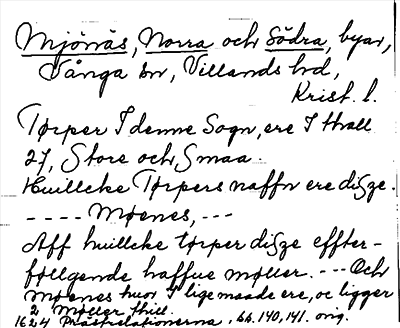 Mjönäs, Norra och Södra, byar,
Vånga sn, Villands hd,
Krist. l.
Tørper I denne Sogn, ere I thall
27, Store och Smaa.
Huillcke Tørpers naffn ere disze.
---- Møenes, ---
Aff huillcke tørper disze effter-
føllgende haffue møller. --- Och
Møenes huor I lige maade ere, oc ligger
2 Møller thill.
1624 Prästrelationerna, bb. 140, 141. orig.